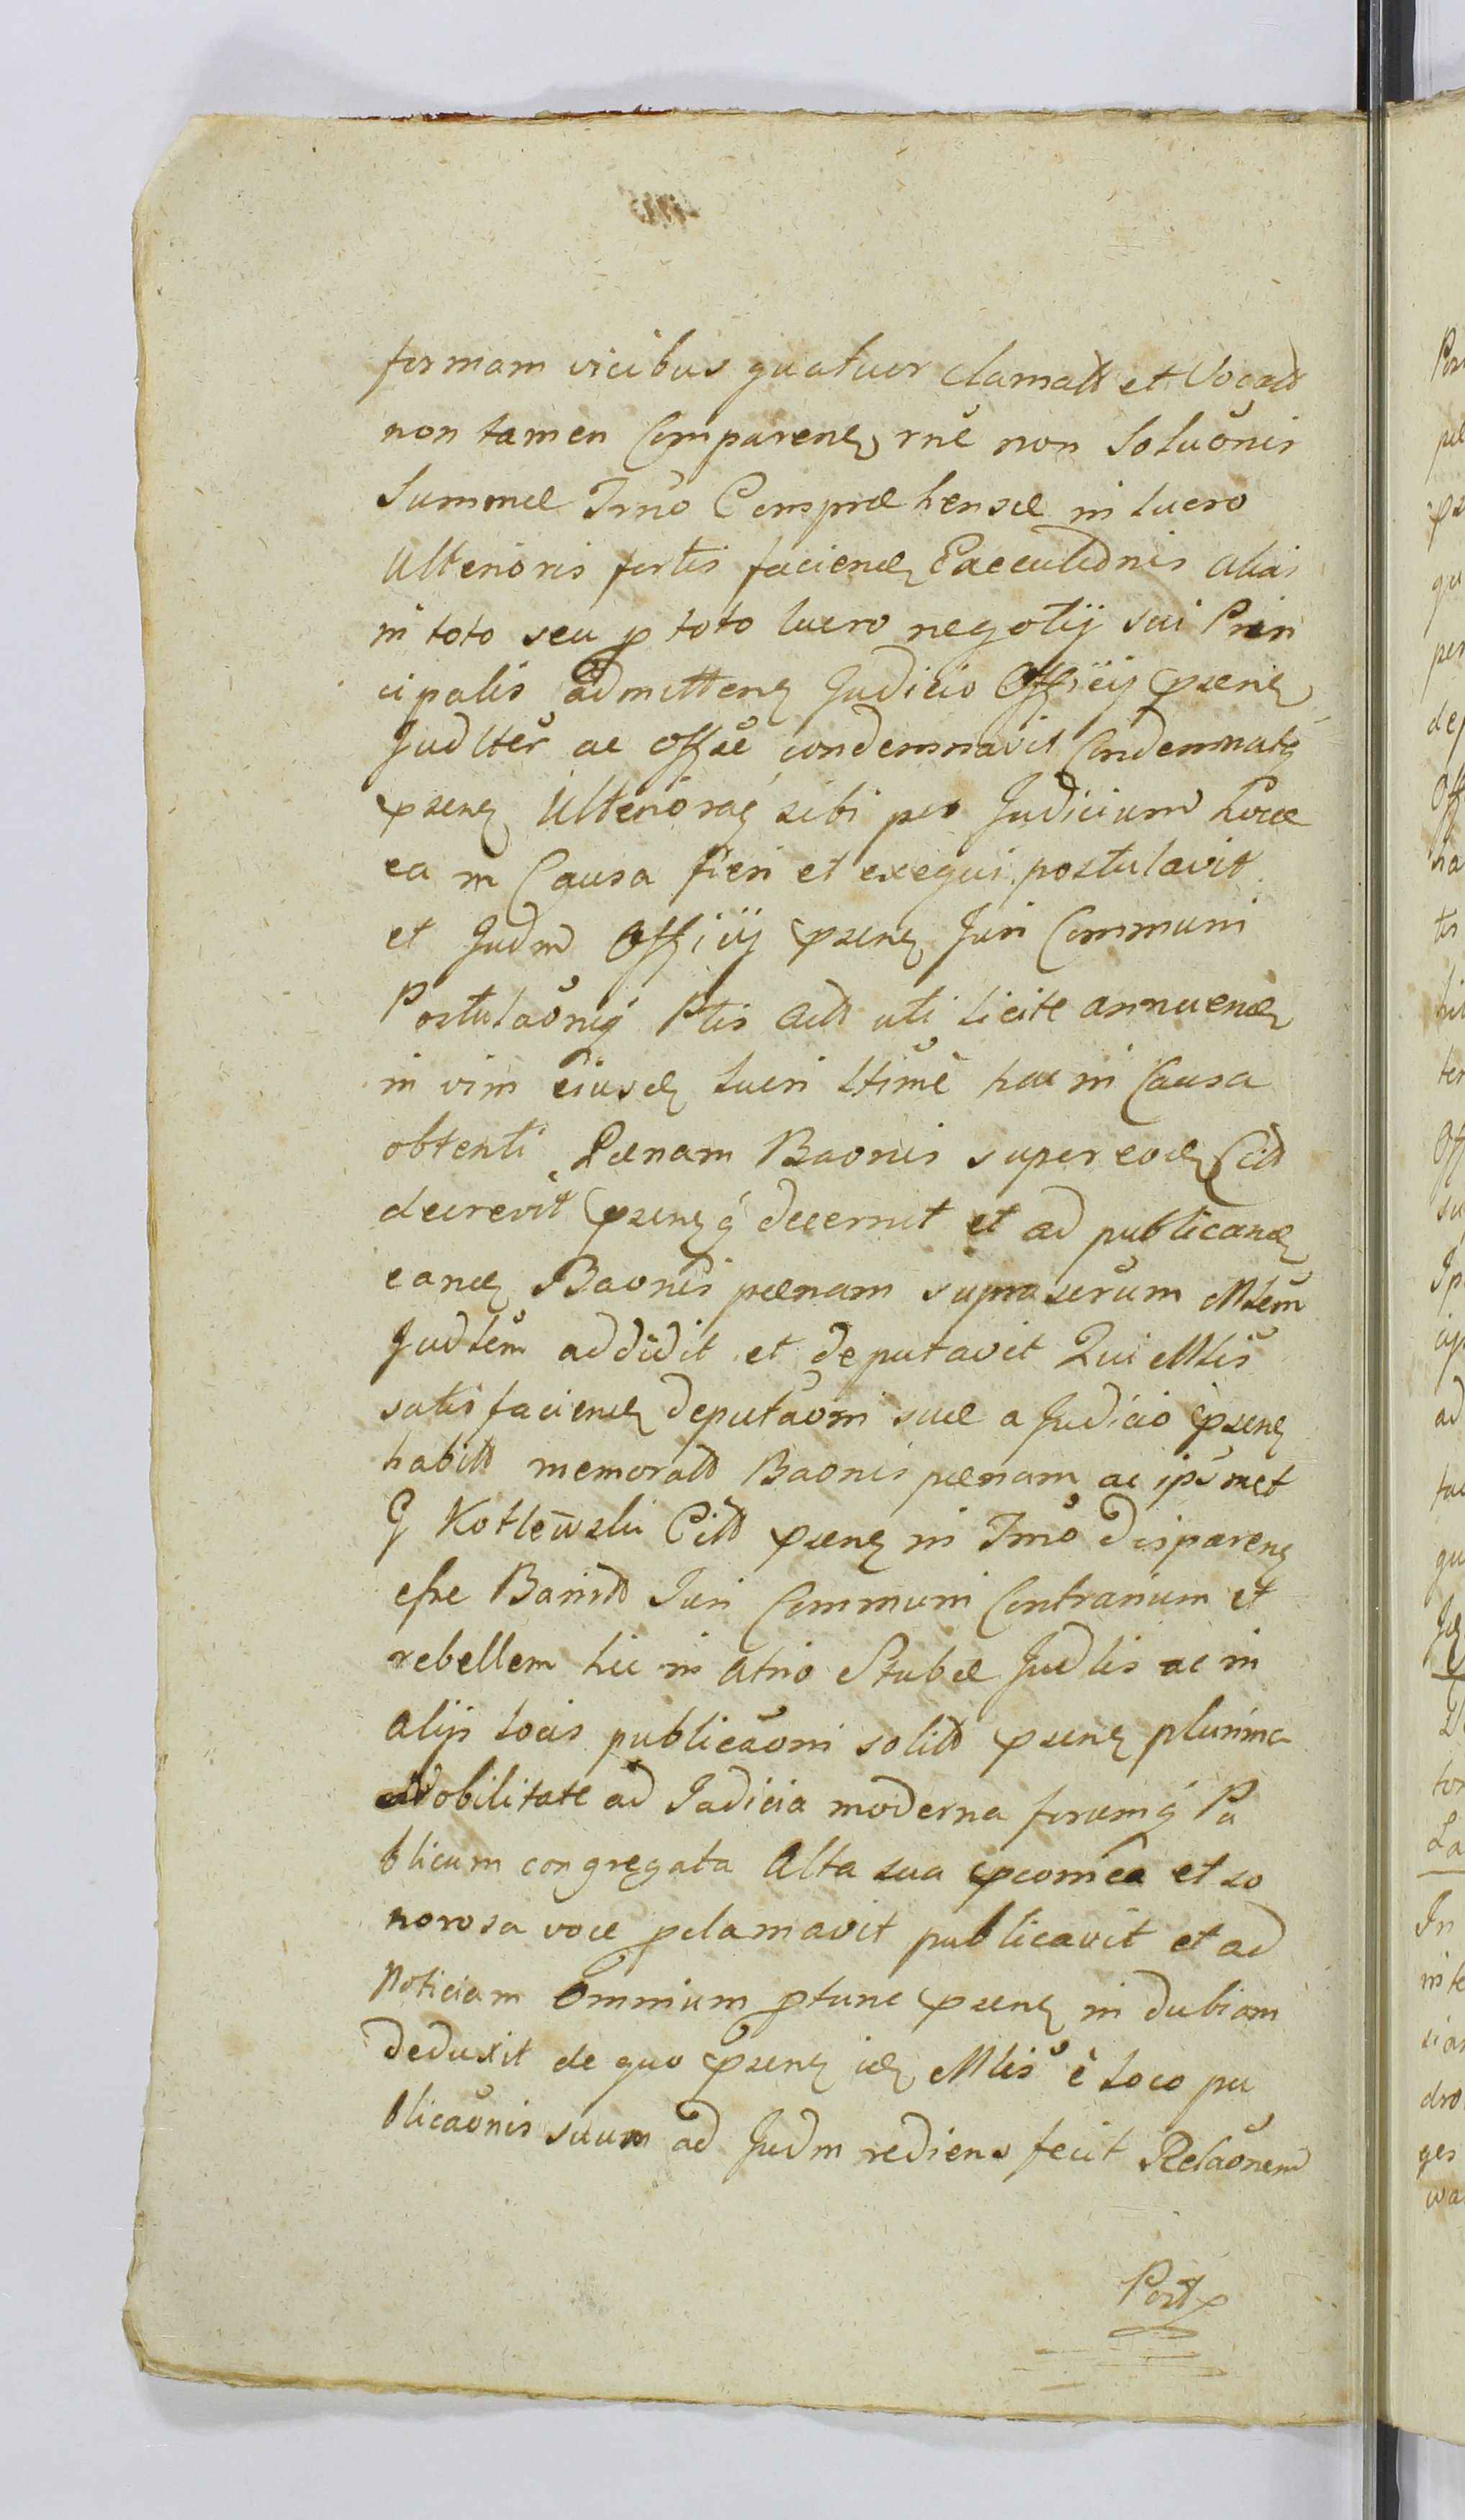 formam vicibus quatuor clamatt et Vocatt
non tamen Comparenz rñe non Solũonis
Summæ Tmõ Compræhensæ in lucro
Ulterioris fortis faciendz Executidnis alias
in toto seu p toto lucro negotij sui Prin
cipalis admittenz Judicio Officij præsenz
Judlter̃ ac offse condemnavit Condemnatq
præsenz Ulterioraq sibi per Judicium hocce
ea in Causa fieri et exequi postulavit
et Judm Officij præsenz Juri Communi
Postulaõniq Ptis Actt uti licite annuendz
in vim eiusdz lucri ltimẽ hac in Causa
obtenti Pænam Baonis super eodz Citt
decrevit præsenzq decernit et ad publicandz
eandz Baonis pænam suprascrum Mlem
Judlem addidit et deputavit Qui Mlis
satisfaciendz deputaõni suæ a Judicio præsenz
habitt memoratt Baonis pænam ac ipsmet
G Kotlewski Citt præsenz in Tmõ disparenz
esse Bannitt Juri Communi Contrarium et
rebellem hic in atrio Stubæ Judlis ac in
alijs locis publicaõni solitt præsenz plurima
Nobilitate ad Judicia moderna forumq Pu
blicum congregata Alta sua præconica et so
norosa voce pclamavit publicavit et ad
Noticiam Omnium ptunc præsenz in dubiam
deduxit de quo præsenz idz Mlis è loco pu
blicaõnis suum ad Judm rediens fecit Relaõnem
Post